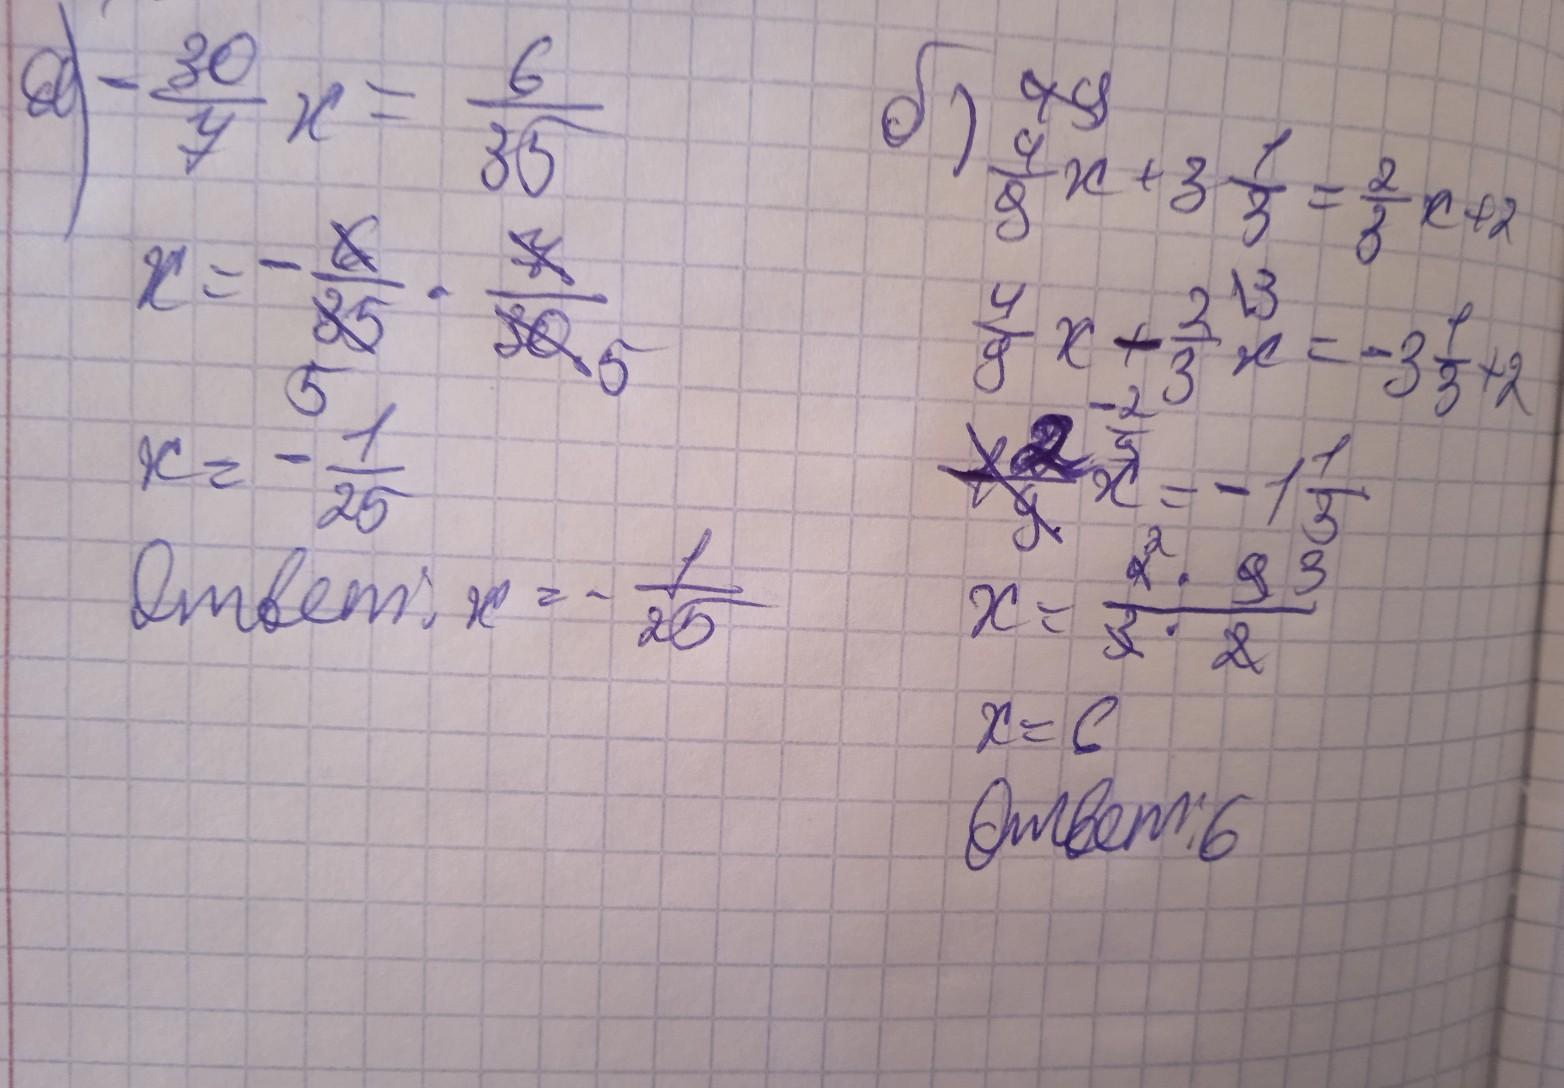 а) - 30/7 x = 6/35
x = - 6/35 · 7/30
5 5
x = - 1/25
Ответ: x = - 1/25
б)
4/9 x + 3 1/3 = 2/3 x + 2
4/9 x - 2/3 \3 x = - 3 1/3 + 2
-2/9 x = - 1 1/3
x = 4 2 · 9 3 / 3 · 2
x = 6
Ответ: 6